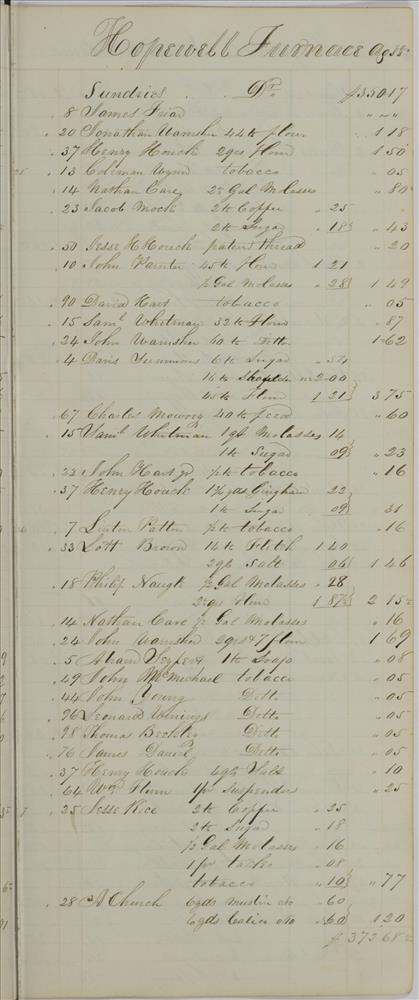 Hopewell Furnace Ag
Sundries . . Dr. $350 17
8 James Friar " ~ "
20 Jonathan Wamsher 44 lb flour 1 18
37 Henry Houck 2 qrs flour 1 50
13 Coleman Wynn tobacco " 05
14 Nathan Care 2 Gal Molasses " 80
23 Jacob Mock 2 lb Coffee " 25
2 lb Sugar " 18 " 43
50 Jesse H Houck patent thread " 20
10 John Painter 45 lb flour 1 21
½ Gal Molasses " 28 1 49
90 David Hart tobacco " 05
15 Saml Whitman 32 lb Flour " 87
24 John Wamsher 60 lb Ditto 1 62
4 Davis Simmons 6 lb Sugar " 54
16 lb 2.00
45 lb Flour 1 21 3 75
67 Charles Mowrey 40 lb feed " 60
15 Saml Whitman 1 qt Molasses 14
1 lb Sugar 09 " 23
22 John Hart Jr ½ lb tobacco " 16
37 Henry Houck 1¾ yds Gingham 22
1 lb Sugar 09 31
7 Linton Patten ½ lb tobacco " 16
33 Lott Brown 14 lb Flitch 1 40
2 qts Salt 06 1 46
18 Philip Naugle ½ Gal Molasses " 28
2 qrs flour 1 87½ 2 15½
14 Nathan Care ½ Gal Molasses " 16
24 John Wamsher 2 qrs 7 flour 1 69
5 1 lb Soap " 08
49 John McMichael tobacco " 05
44 John Young Ditto " 05
96 Leonard Winings Ditto " 05
98 Thomas Beckley Ditto " 05
76 James Daniel Ditto " 05
37 Henry Houck 4 qts Salt " 10
64 Wm. 1 pr Suspenders " 25
25 Jesse Rice 2 lb Coffee " 25
2 lb Sugar " 18
½ Gal Molasses " 16
1 pr " 08
tobacco " 10 " 77
28 A Church 6 yds muslin " 60
6 yds Calico " 60 1 20
$373 68